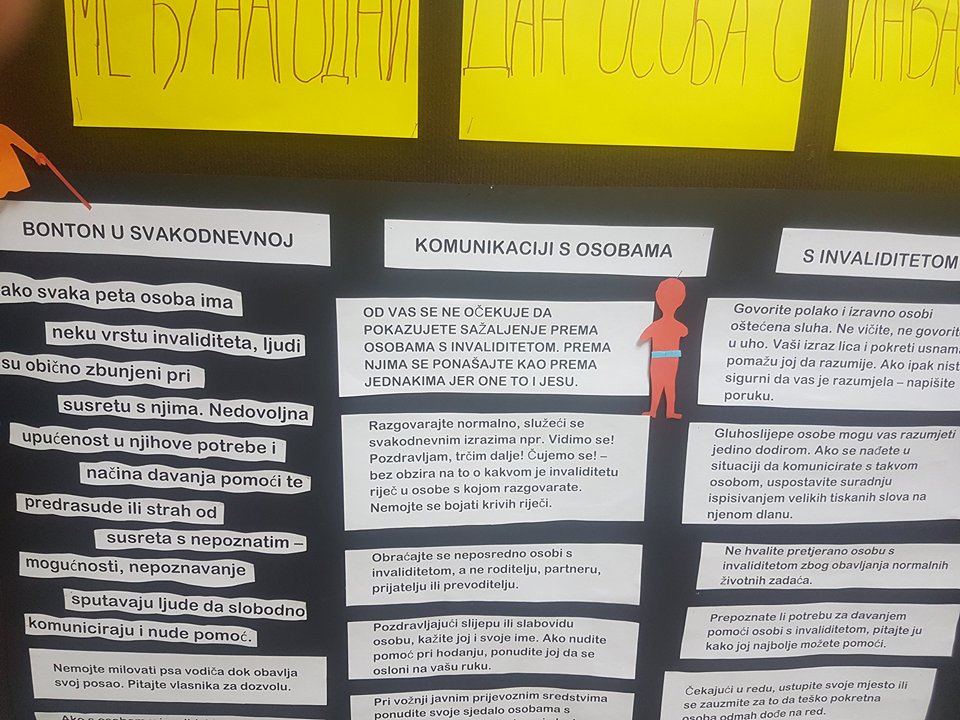 МЕЂУНАРОДНИ ДАН ОСОБА С ИНВА
BONTON U SVAKODNEVNOJ
KOMUNIKACIJI S OSOBAMA
S INVALIDITETOM
ako svaka peta osoba ima
neku vrstu invaliditeta, ljudi
su obično zbunjeni pri
susretu s njima. Nedovoljna
upućenost u njihove potrebe i
načina davanja pomoći te
predrasude ili strah od
susreta s nepoznatim –
mogućnosti, nepoznavanje
sputavaju ljude da slobodno
komuniciraju i nude pomoć.
Nemojte milovati psa vodiča dok obavlja
svoj posao. Pitajte vlasnika za dozvolu.
OD VAS SE NE OČEKUJE DA
POKAZUJETE SAŽALJENJE PREMA
OSOBAMA S INVALIDITETOM. PREMA
NJIMA SE PONAŠAJTE KAO PREMA
JEDNAKIMA JER ONE TO I JESU.
Razgovarajte normalno, služeći se
svakodnevnim izrazima npr. Vidimo se!
Pozdravljam, trčim dalje! Čujemo se! –
bez obzira na to o kakvom je invaliditetu
riječ u osobe s kojom razgovarate.
Nemojte se bojati krivih riječi.
Obraćajte se neposredno osobi s
invaliditetom, a ne roditelju, partneru,
prijatelju ili prevoditelju.
Pozdravljajući slijepu ili slabovidu
osobu, kažite joj i svoje ime. Ako nudite
pomoć pri hodanju, ponudite joj da se
osloni na vašu ruku.
Pri vožnji javnim prijevoznim sredstvima
ponudite svoje sjedalo osobama s
Govorite polako i izravno osobi
oštećena sluha. Ne vičite, ne govorit
u uho. Vaši izraz lica i pokreti usnama
pomažu joj da razumije. Ako ipak nist
sigurni da vas je razumjela – napišite
poruku.
Gluhoslijepe osobe mogu vas razumjeti
jedino dodirom. Ako se nađete u
situaciji da komunicirate s takvom
osobom, uspostavite suradnju
ispisivanjem velikih tiskanih slova na
njenom dlanu.
Ne hvalite pretjerano osobu s
invaliditetom zbog obavljanja normalnih
životnih zadaća.
Prepoznate li potrebu za davanjem
pomoći osobi s invaliditetom, pitajte ju
kako joj najbolje možete pomoći.
Čekajući u redu, ustupite svoje mjesto ili
se zauzmite za to da teško pokretna
osoba odmah dođe na red.